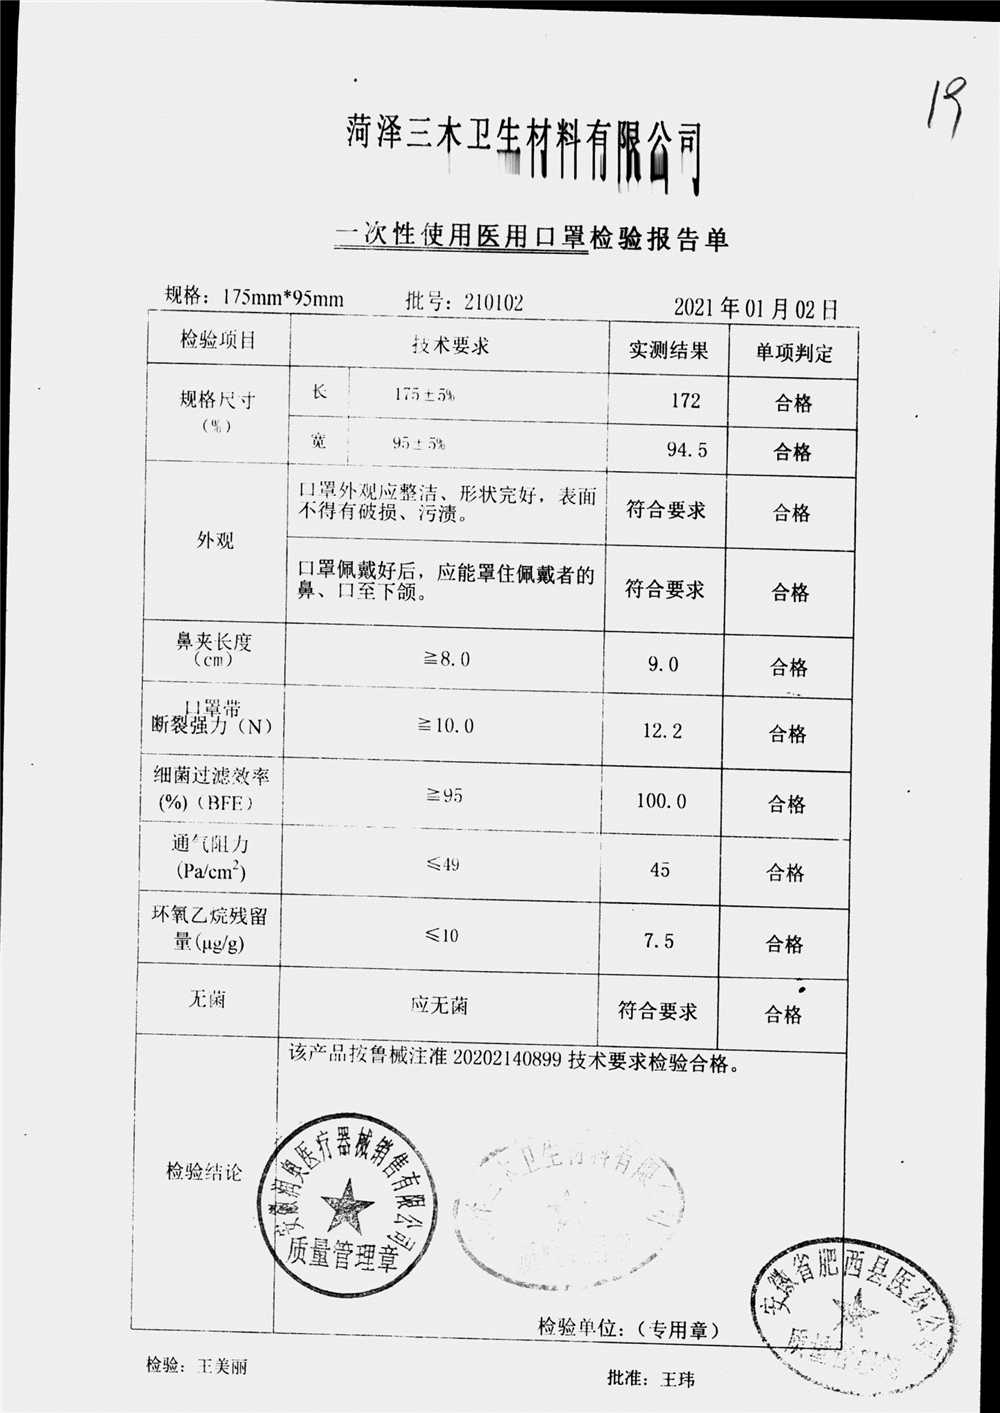 19
菏泽三木卫生材料有限公司
一次性使用医用口罩检验报告单
规格：175mm*95mm 批号：210102 2021年01月02日
检验项目 技术要求 实测结果 单项判定
规格尺寸
（%）
长 175±5% 172 合格
宽 95±5% 94.5 合格
外观
口罩外观应整洁、形状完好，表面
不得有破损、污渍。
符合要求 合格
口罩佩戴好后，应能罩住佩戴者的
鼻、口至下颌。
符合要求 合格
鼻夹长度
（cm）
≧8.0 9.0 合格
口罩带
断裂强力（N）
≧10.0 12.2 合格
细菌过滤效率
(%)（BFE）
≧95 100.0 合格
通气阻力
(Pa/cm²)
≤49 45 合格
环氧乙烷残留
量(μg/g)
≤10 7.5 合格
无菌 应无菌 符合要求 合格
检验结论
该产品按鲁械注准 20202140899 技术要求检验合格。
安徽润奥医疗器械销售有限公司
质量管理章
卫生材料有限公司
安徽省肥西县医药公司
质量
检验单位：（专用章）
检验：王美丽 批准：王玮